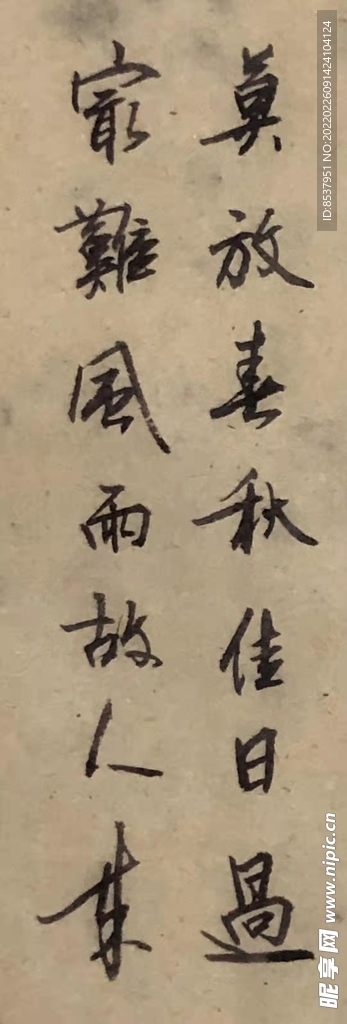 莫放春秋佳日過
最難風雨故人來
ID:8537951 NO:20220226091424104124
昵享网 www.nipic.cn